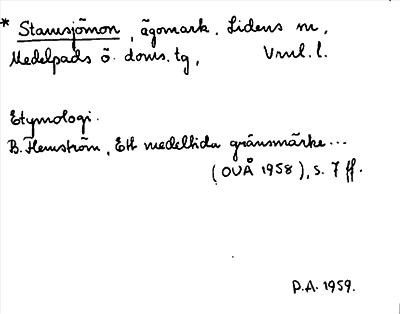 * Stamsjömon, ägomark. Lidens sn,
Medelpads ö. doms. tg, Västl. l.
Etymologi.
B. Flemström, Ett medeltida gränsmärke...
(OUÅ 1958), s. 7 ff.
P.A. 1959.